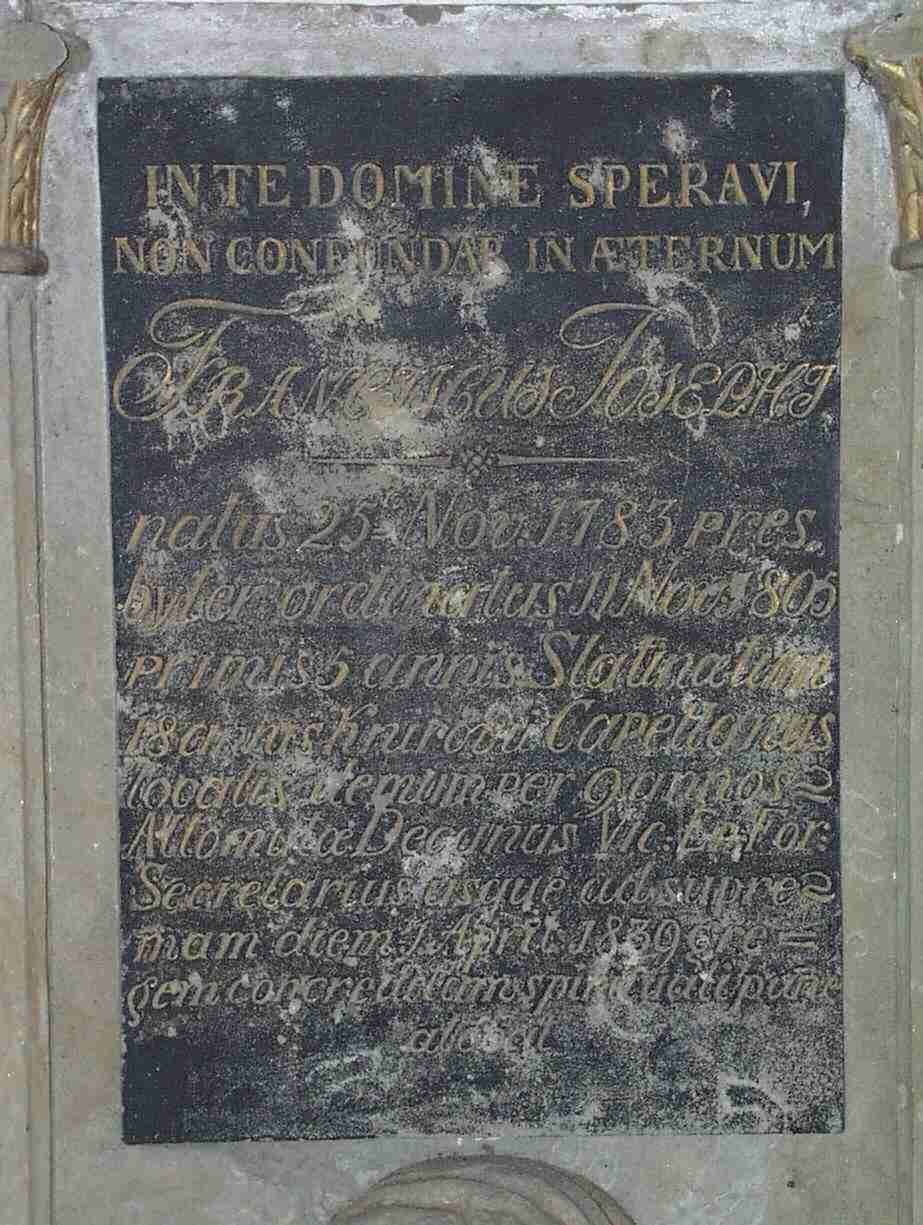 IN TE DOMINE SPERAVI,
NON CONFUNDAR IN ÆTERNUM
FRANCISCUS JOSEPHI
natus 25 Nov. 1783 pres
byter ordinatus 11 Nov. 1805
primis 5 annis Slatinæ tum
18 annis Capellanus
localis demum per 9 annos
Altomutæ Decanus Vic: Ep: For:
Secretarius usque ad supre
mam diem 1 April 1839 gre =
gem concreditam spirituali pane